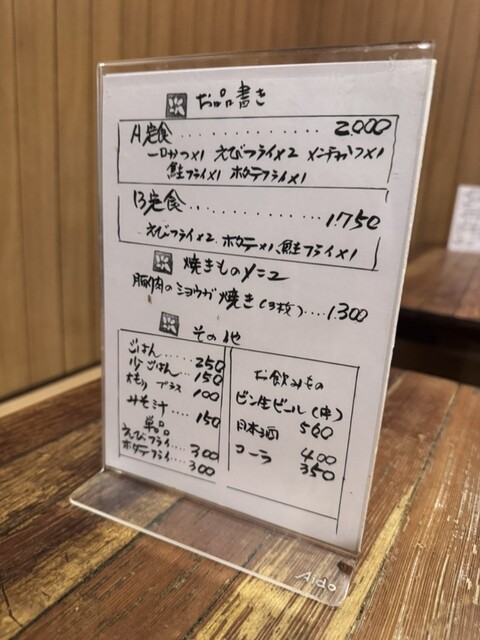 お品書き
A定食 ............ 2,000
一口かつ×1 えびフライ×2 メンチかつ×1
鮭フライ×1 ホタテフライ×1
B定食 ............ 1,750
えびフライ×2 ホタテ×1 鮭フライ×1
焼きものメニュー
豚肉のショウガ焼き(3枚)....1,300
その他
ごはん ..... 250
少ごはん .... 150
大もり プラス 100
みそ汁 .... 150
単品
えびフライ.... 300
ホタテフライ.... 300
お飲みもの
ビン生ビール(中)
560
日本酒 400
コーラ 350
Aido